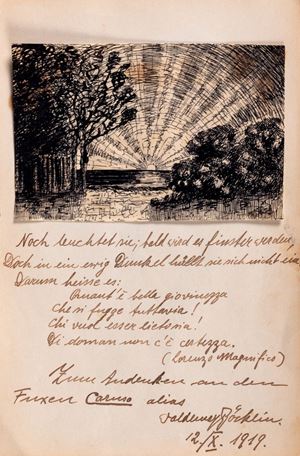 Noch leuchtet sie; bald wird es finster werden,
Doch in ein ewig Dunkel hüllt sie sich nicht ein
Darum heisse es:
Quant'è bella giovinezza
Che si fugge tuttavia!
Chi vuol esser lieto sia!
Di doman non c'è certezza.
(Lorenzo Magnifico)
Zum Andenken an den
Fuxen Caruso alias
12./X. 1919.